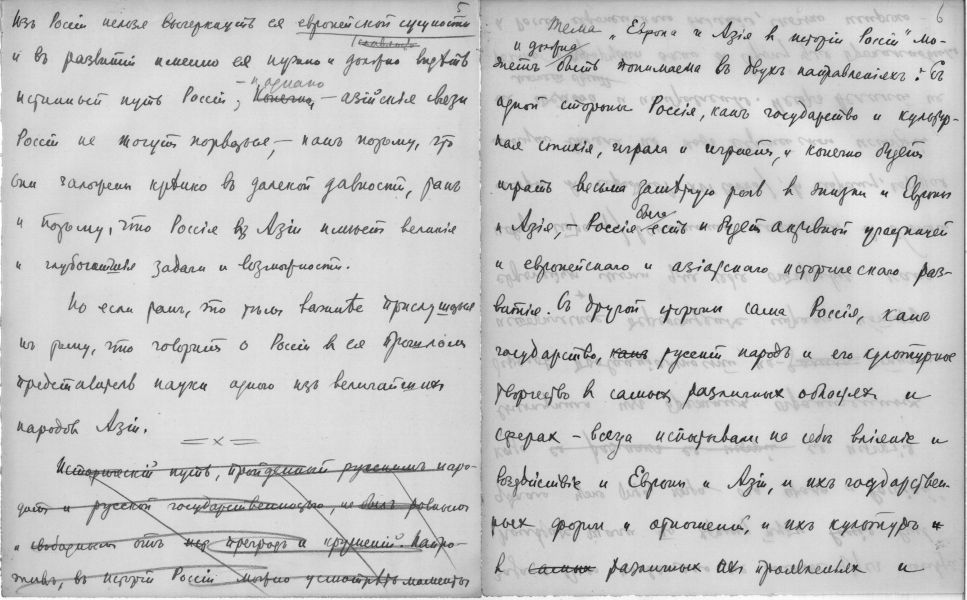 5
Изъ Россіи нельзя вычеркнуть ея европейской сущности
и въ развитіи именно ея нужно и должно видѣть
истинный путь Россіи; Конечно, – азійскія связи
– и однако
Россіи не могутъ порваться, – какъ потому, что
они заложены крѣпко въ далекой давности, такъ
и потому, что Россія въ Азіи имѣетъ великія
и глубочайшія задачи и возможности.
Но если такъ, то тѣмъ важнѣе прислушаться
къ тому, что говоритъ о Россіи и ея прошломъ
представитель науки одного изъ величайшихъ
народовъ Азіи.
= x =
Историческій путь, пройденный русскимъ наро-
домъ и русской государственностью, не былъ ровнымъ
и свободнымъ отъ преградъ и крушеній. Напро-
тивъ, въ исторіи Россіи можно усмотрѣть моменты
6
Тема „Европа и Азія въ исторіи Россіи" мо-
и должна
жетъ быть понимаема въ двухъ направленіяхъ: Съ
одной стороны Россія, какъ государство и культур-
ная стихія, играла и играетъ, и конечно будетъ
играть весьма замѣтную роль въ жизни и Европы
была
и Азіи, – Россія есть и будетъ активной участницей
и европейскаго и азіатскаго историческаго раз-
витія. Съ другой стороны сама Россія, какъ
государство, какъ русскій народъ и его культурное
творчество въ самыхъ различныхъ областяхъ и
сферахъ – всегда испытывали на себѣ вліяніе и
воздѣйствіе и Европы и Азіи, и ихъ государствен-
ныхъ формъ и отношеній, и ихъ культуръ
въ самыхъ различныхъ ихъ проявленіяхъ и